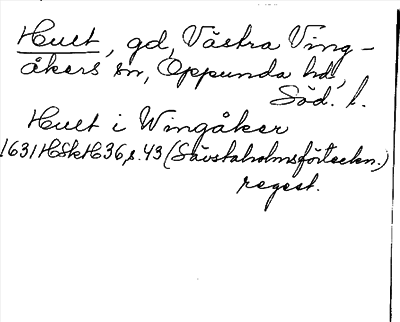 Hult, gd, Västra Ving-
åkers sn, Oppunda hd,
Söd. l.
Hult i Wingåker
1631 HSkH 36, s. 43 (Sävstaholmsförteckn.)
regest.